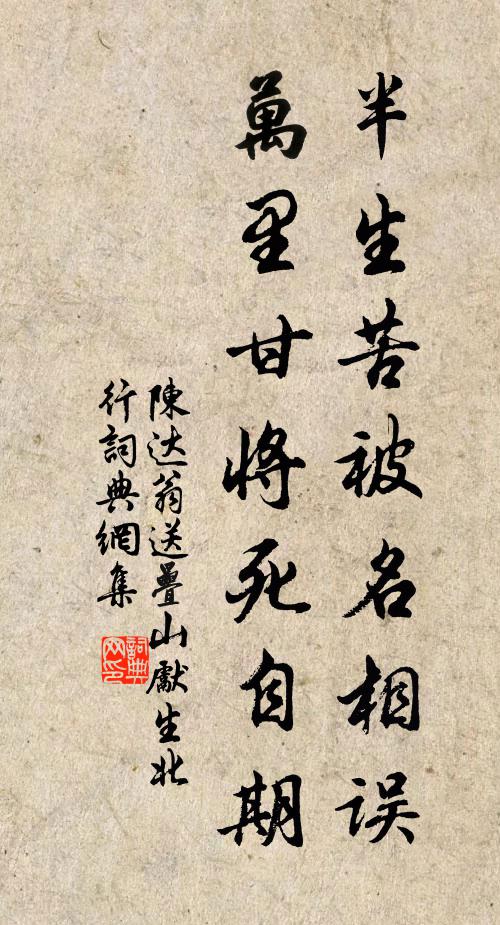 半生苦被名相误
萬里甘將死自期
陳达翁送疊山獻生北
行詞典網集
詞典
网印